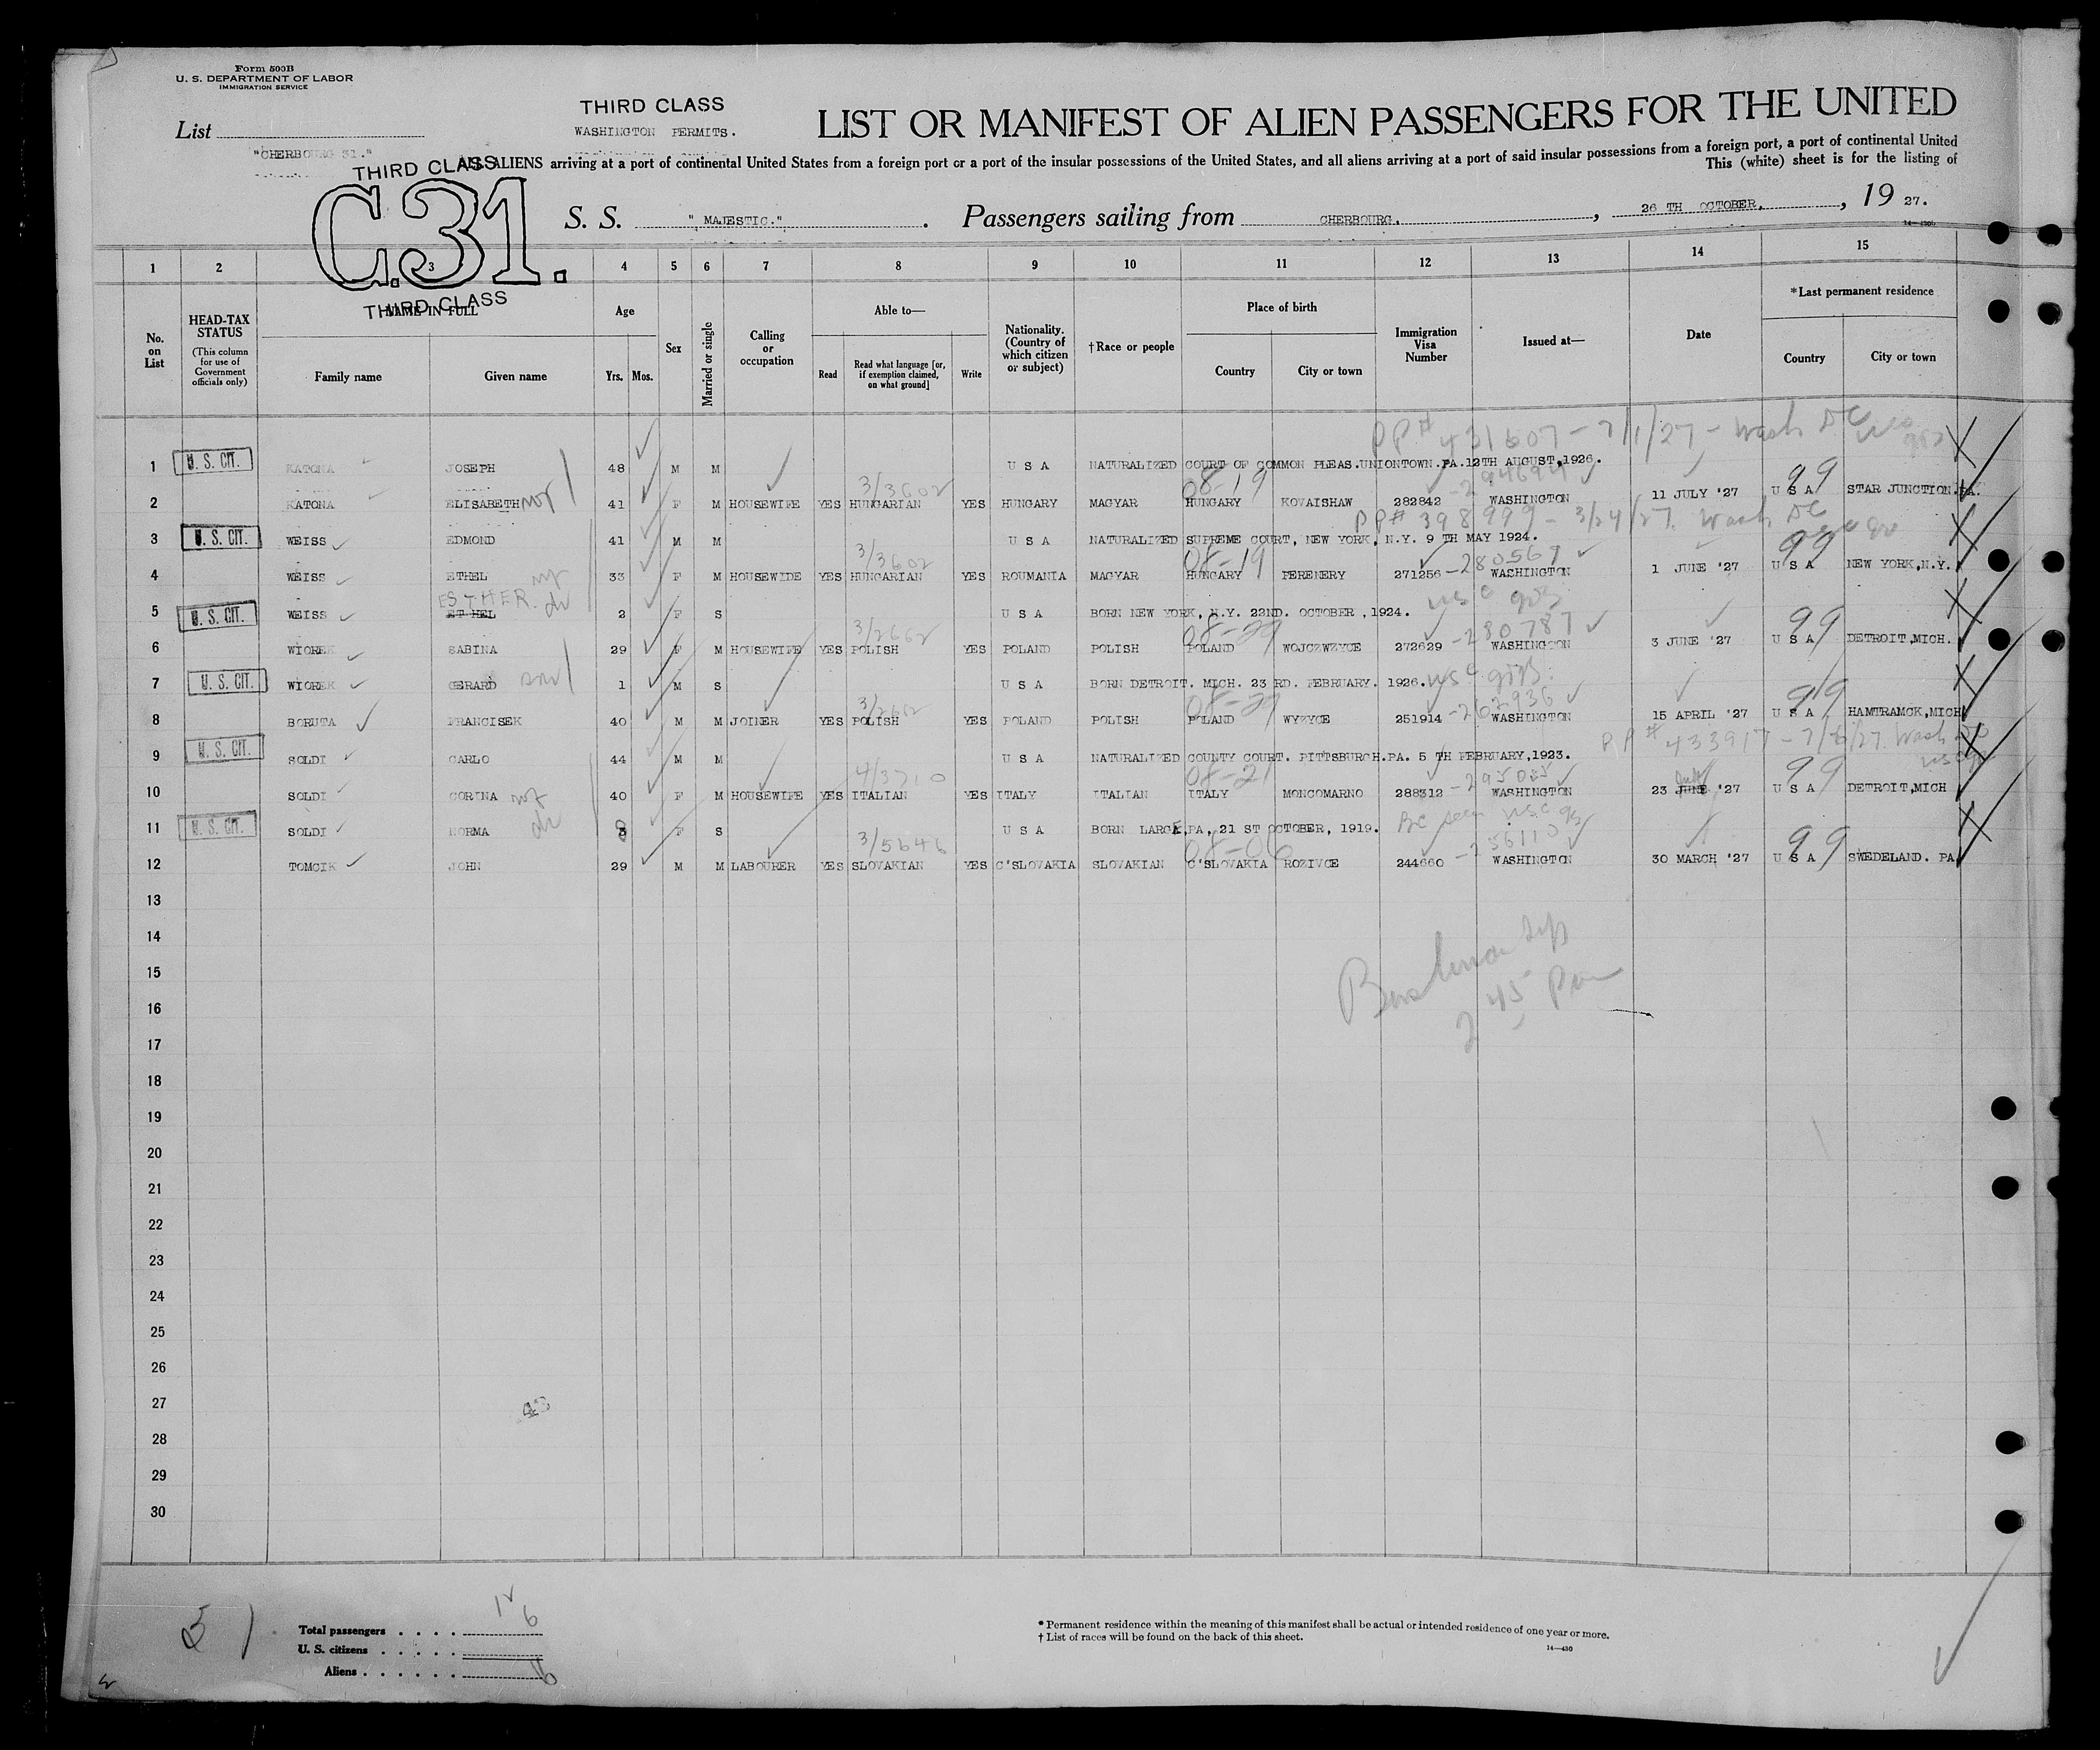 Form 500B
U. S. DEPARTMENT OF LABOR
IMMIGRATION SERVICE
List
"CHERBOURG 31."
THIRD CLASS
WASHINGTON PERMITS.
LIST OR MANIFEST OF ALIEN PASSENGERS FOR THE UNITED
THIRD CLASS
ALL ALIENS arriving at a port of continental United States from a foreign port or a port of the insular possessions of the United States, and all aliens arriving at a port of said insular possessions from a foreign port, a port of continental United
This (white) sheet is for the listing of
C.31.
S. S. "MAJESTIC." . Passengers sailing from CHERBOURG. , 26 TH OCTOBER, , 19 27.
1 2 3 4 5 6 7 8 9 10 11 12 13 14 15
THIRD CLASS
No. on List
HEAD-TAX STATUS
(This column for use of Government officials only)
NAME IN FULL
Family name Given name
Age
Yrs. Mos.
Sex
Married or single
Calling or occupation
Able to—
Read
Read what language [or, if exemption claimed, on what ground]
Write
Nationality. (Country of which citizen or subject)
†Race or people
Place of birth
Country City or town
Immigration Visa Number
Issued at—
Date
*Last permanent residence
Country City or town
PP# 421607 - 7/1/27 - Wash DC
1 U. S. CIT. KATONA JOSEPH 48 M M U S A NATURALIZED COURT OF COMMON PLEAS.UNIONTOWN.PA.12TH AUGUST,1926.
3/3602 08-19 -294694 99
2 KATONA ELISABETH 41 F M HOUSEWIFE YES HUNGARIAN YES HUNGARY MAGYAR HUNGARY KOVAISHAW 282842 WASHINGTON 11 JULY '27 U S A STAR JUNCTION.PA.
PP# 398999 - 3/24/27. Wash DC
3 U. S. CIT. WEISS EDMOND 41 M M U S A NATURALIZED SUPREME COURT, NEW YORK, N.Y. 9 TH MAY 1924.
3/3602 08-19 -280567 99
4 WEISS ETHEL 33 F M HOUSEWIDE YES HUNGARIAN YES ROUMANIA MAGYAR HUNGARY FERENERY 271256 WASHINGTON 1 JUNE '27 U S A NEW YORK,N.Y.
ESTHER.
5 U. S. CIT. WEISS ETHEL 2 F S U S A BORN NEW YORK, N.Y. 22ND. OCTOBER ,1924.
3/2662 08-29 -280787 99
6 WIOREK SABINA 29 F M HOUSEWIFE YES POLISH YES POLAND POLISH POLAND WOJCZWZYCE 272629 WASHINGTON 3 JUNE '27 U S A DETROIT,MICH.
7 U. S. CIT. WIOREK GERARD 1 M S U S A BORN DETROIT. MICH. 23 RD. FEBRUARY. 1926.
3/2662 08-29 -262936 99
8 BORUTA FRANCISEK 40 M M JOINER YES POLISH YES POLAND POLISH POLAND WYZYCE 251914 WASHINGTON 15 APRIL '27 U S A HAMTRAMCK,MICH
PP# 433917 - 7/8/27. Wash DC
9 U. S. CIT. SOLDI CARLO 44 M M U S A NATURALIZED COUNTY COURT. PITTSBURCH.PA. 5 TH FEBRUARY,1923.
4/3710 08-21 -295035 July 99
10 SOLDI CORINA 40 F M HOUSEWIFE YES ITALIAN YES ITALY ITALIAN ITALY MONCOMARNO 288312 WASHINGTON 23 JUNE '27 U S A DETROIT,MICH
11 U. S. CIT. SOLDI NORMA 8 F S U S A BORN LARGE,PA, 21 ST OCTOBER, 1919. BC seen
3/5646 08-06 99
12 TOMCIK JOHN 29 M M LABOURER YES SLOVAKIAN YES C'SLOVAKIA SLOVAKIAN C'SLOVAKIA ROZIVCE 244660 WASHINGTON 30 MARCH '27 U S A SWEDELAND. PA
13
14
15
16
2 45 Pm
17
18
19
20
21
22
23
24
25
26
27
28
29
30
Total passengers
U. S. citizens
Aliens
* Permanent residence within the meaning of this manifest shall be actual or intended residence of one year or more.
† List of races will be found on the back of this sheet.
14—430